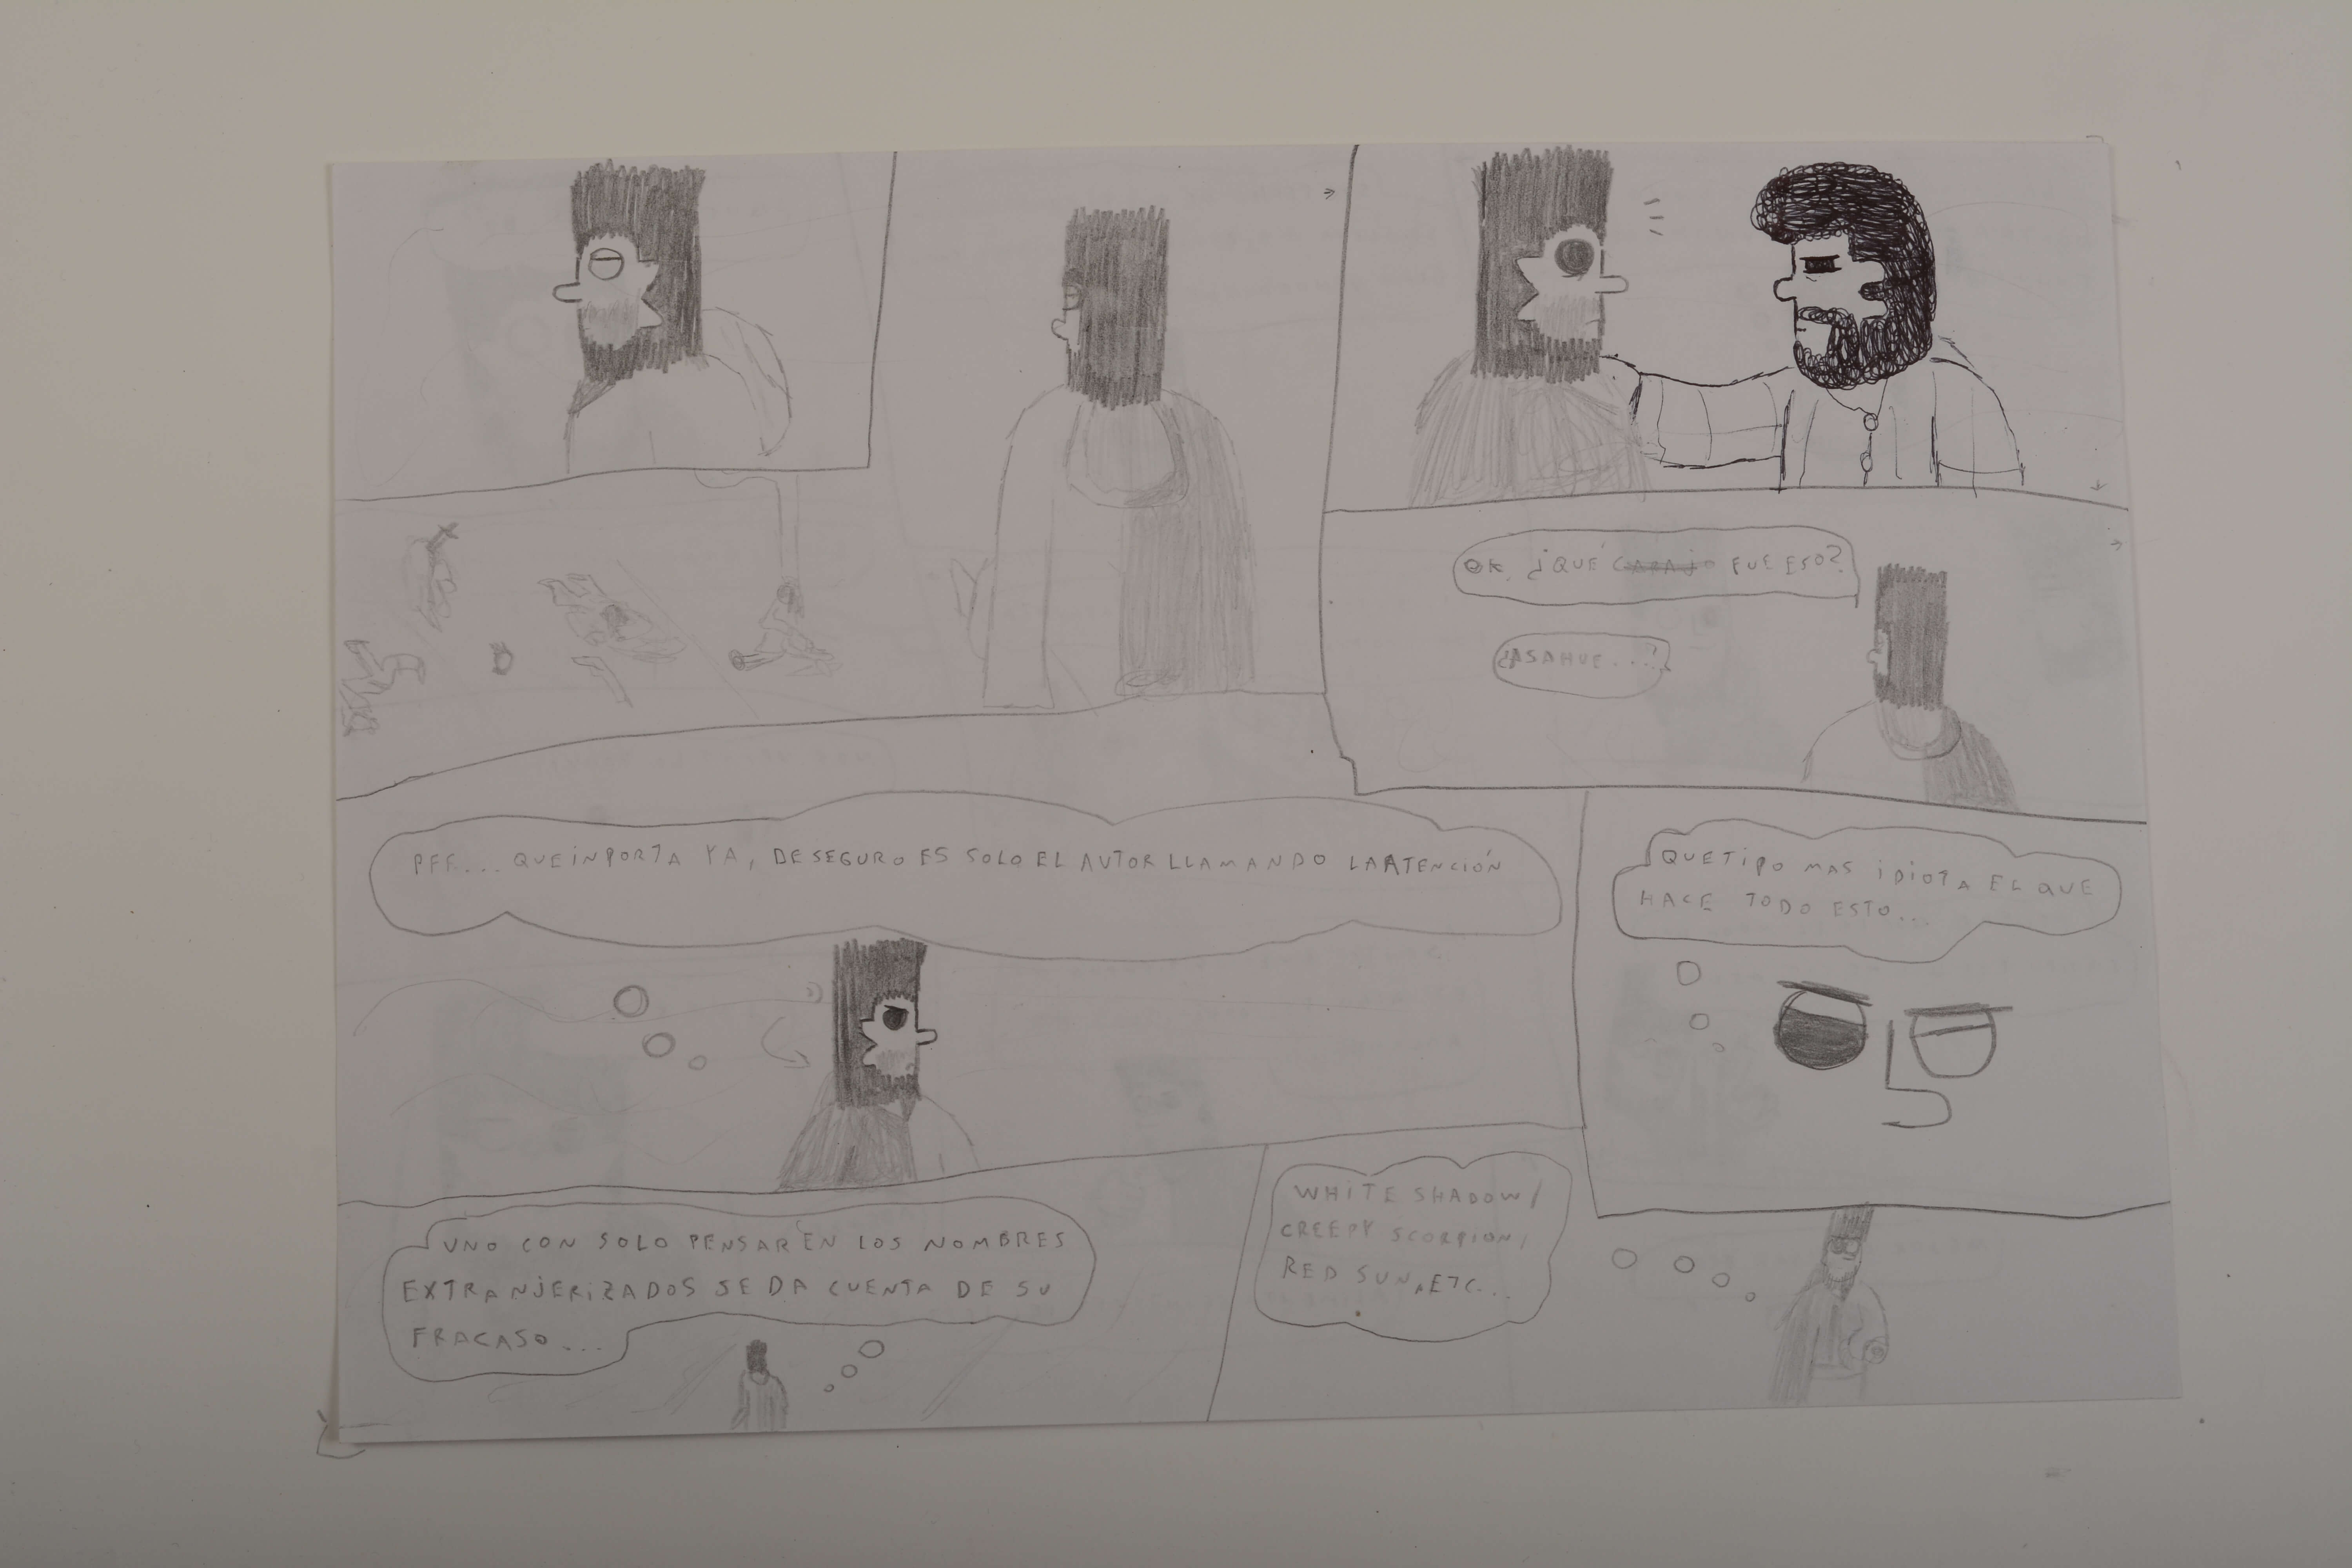 OK. ¿QUÉ CARAJO FUE ESO?
¿ASAHUE...?
PFF... QUE INPORTA YA, DE SEGURO ES SOLO EL AUTOR LLAMANDO LA ATENCIÓN
QUE TIPO MAS IDIOTA EL QUE
HACE TODO ESTO...
UNO CON SOLO PENSAR EN LOS NOMBRES
EXTRANJERIZADOS SE DA CUENTA DE SU
FRACASO...
WHITE SHADOW,
CREEPY SCORPION,
RED SUN, ETC...